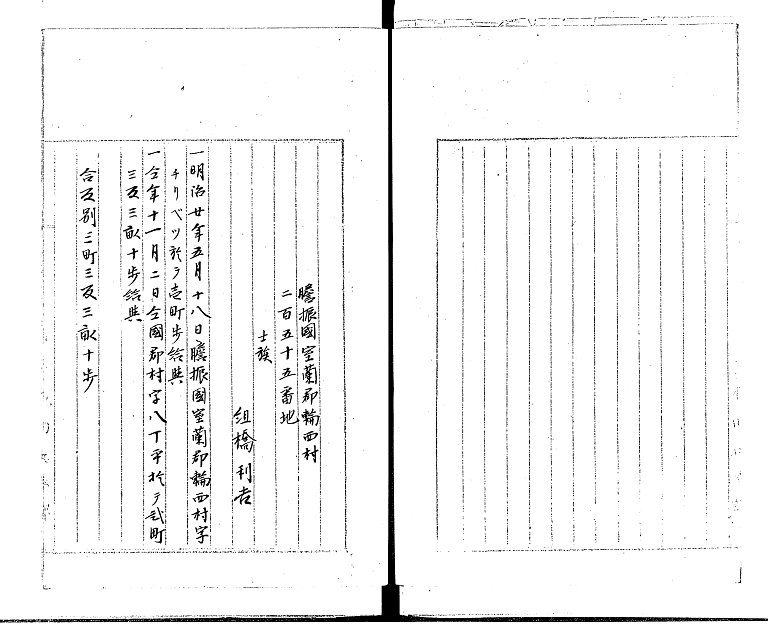 膽振國室蘭郡輪西村
二百五十五番地
士族
組橋利吉
一明治廿年五月十八日膽振國室蘭郡輪西村字
チリベツ於テ壱町歩給與
一仝年十一月二日仝國郡村字八丁平於テ弐町
三反三畝十歩給與
合反別三町三反三畝十歩